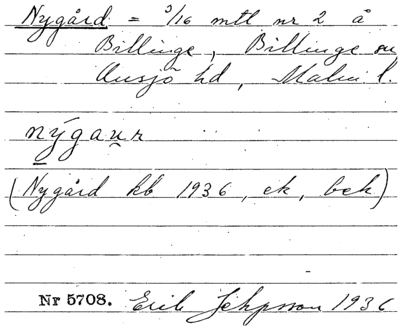 Nygård = 3/16 mtl nr 2 å
Billinge, Billinge sn
Onsjö hd, Malm. l.
nýgaụr
(Nygård kb 1936, ek, bek)
Nr 5708. Erik Jeppsson 1936